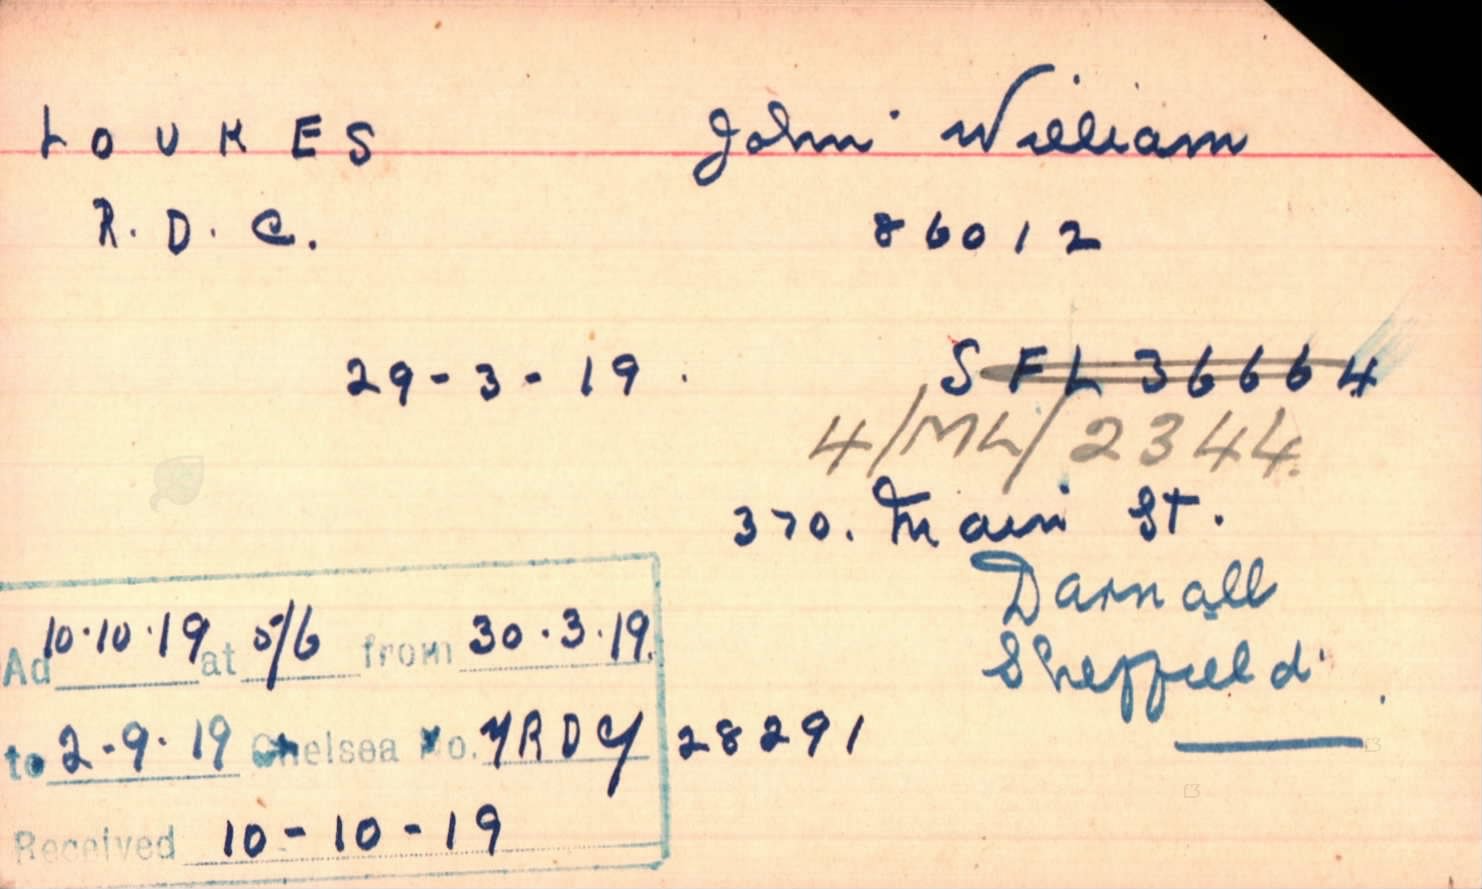 LOUKES John William
R.D.C. 86012
29-3-19. SFL 36664
4/ML/2344.
370. Main St.
Darnall
Sheffield.
Ad 10.10.19 at 5/6 from 30.3.19.
to 2-9-19 Chelsea No. 28291
Received 10-10-19